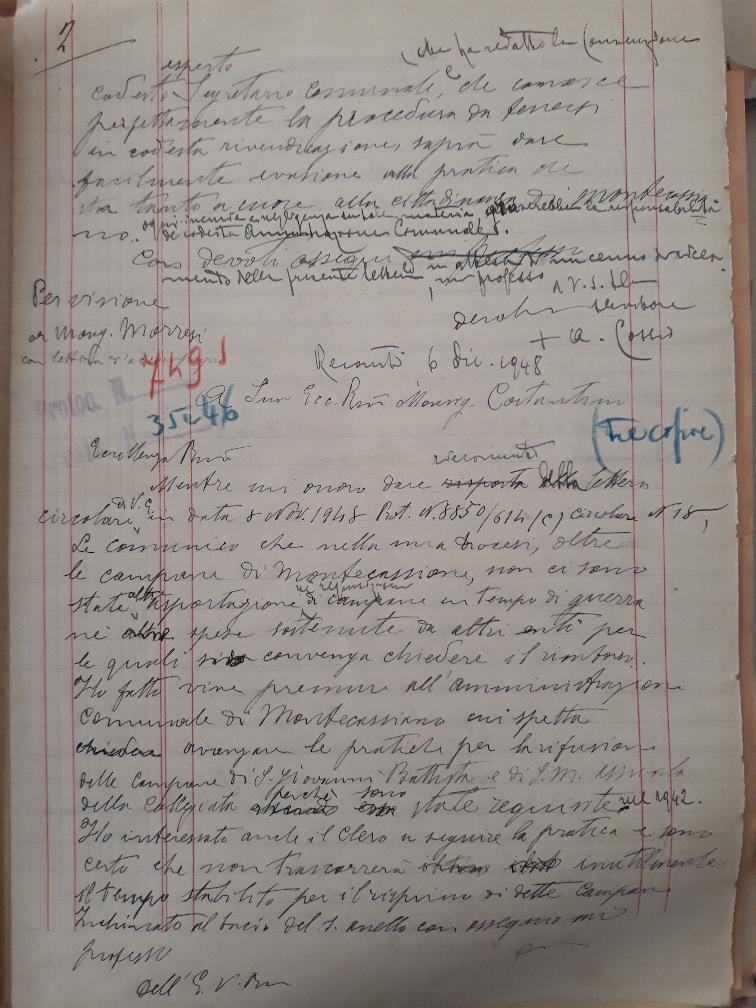 2
che ha redatto la Convenzione
esperto
codesto Segretario Comunale, e che conosce
perfettamente la procedura da tenersi
in codesta rivendicazione, saprà dare
facilmente evasione alla pratica che
sta tanto a cuore alla cittadinanza di Montecassia
no. ogni incuria e negligenza in tale materia, la responsabilità
di codesta Amministrazione Comunale.
Con devoti ossequi in attesa di un cenno di ricevi
mento della presente lettera, mi professo
Per visione a V. S. Ill
a Mons. Morresi devotmo servitore
con lettera d'accompagno + A. Cossio
749
Recanati 6 dic. 1948
Protoc. N.
352 46
A Sua Ecc. Rma Monsig. Costantini
(tre copie)
Eccellenza Rma
riscontro
Mentre mi onoro dare risposta della lettera
circolare di V. E. in data 8 Nov. 1948 Prot. N. 8850/614/(c) Circolare N 18,
Le comunico che nella mia Diocesi, oltre
le campane di Montecassione, non ci sono
state altre asportazione di campane in tempo di guerra
nè altre spese sostenute da altri enti per
le quali convenga chiedere il rimborso.
Ho fatto vive premure all'amministrazione
Comunale di Montecassiano cui spetta
chiedere avanzare le pratiche per la rifusione
delle campane di S. Giovanni Battista e di S. M. Assunta
della Collegiata perchè sono state requisite nel 1942.
Ho interessato anche il Clero a seguire la pratica e sono
certo che non trascorrerà inutilmente
il tempo stabilito per il ripristino di dette Campane
Inchinato al bacio del S. anello con ossequio mi
professo
Dell' E. V. Rma